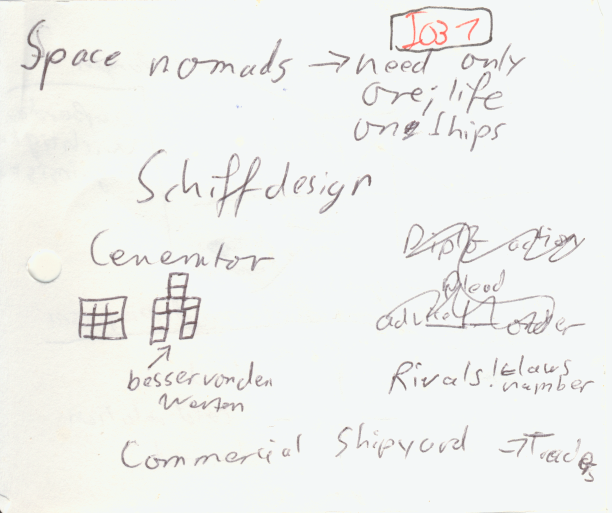 IO31
Space nomads → need only
Ore; life
on Ships
Schiffdesign
Generator
besser von den
Werten
Diplo action
plead
order
Rivals!
number
Commercial Shipyard → Traders